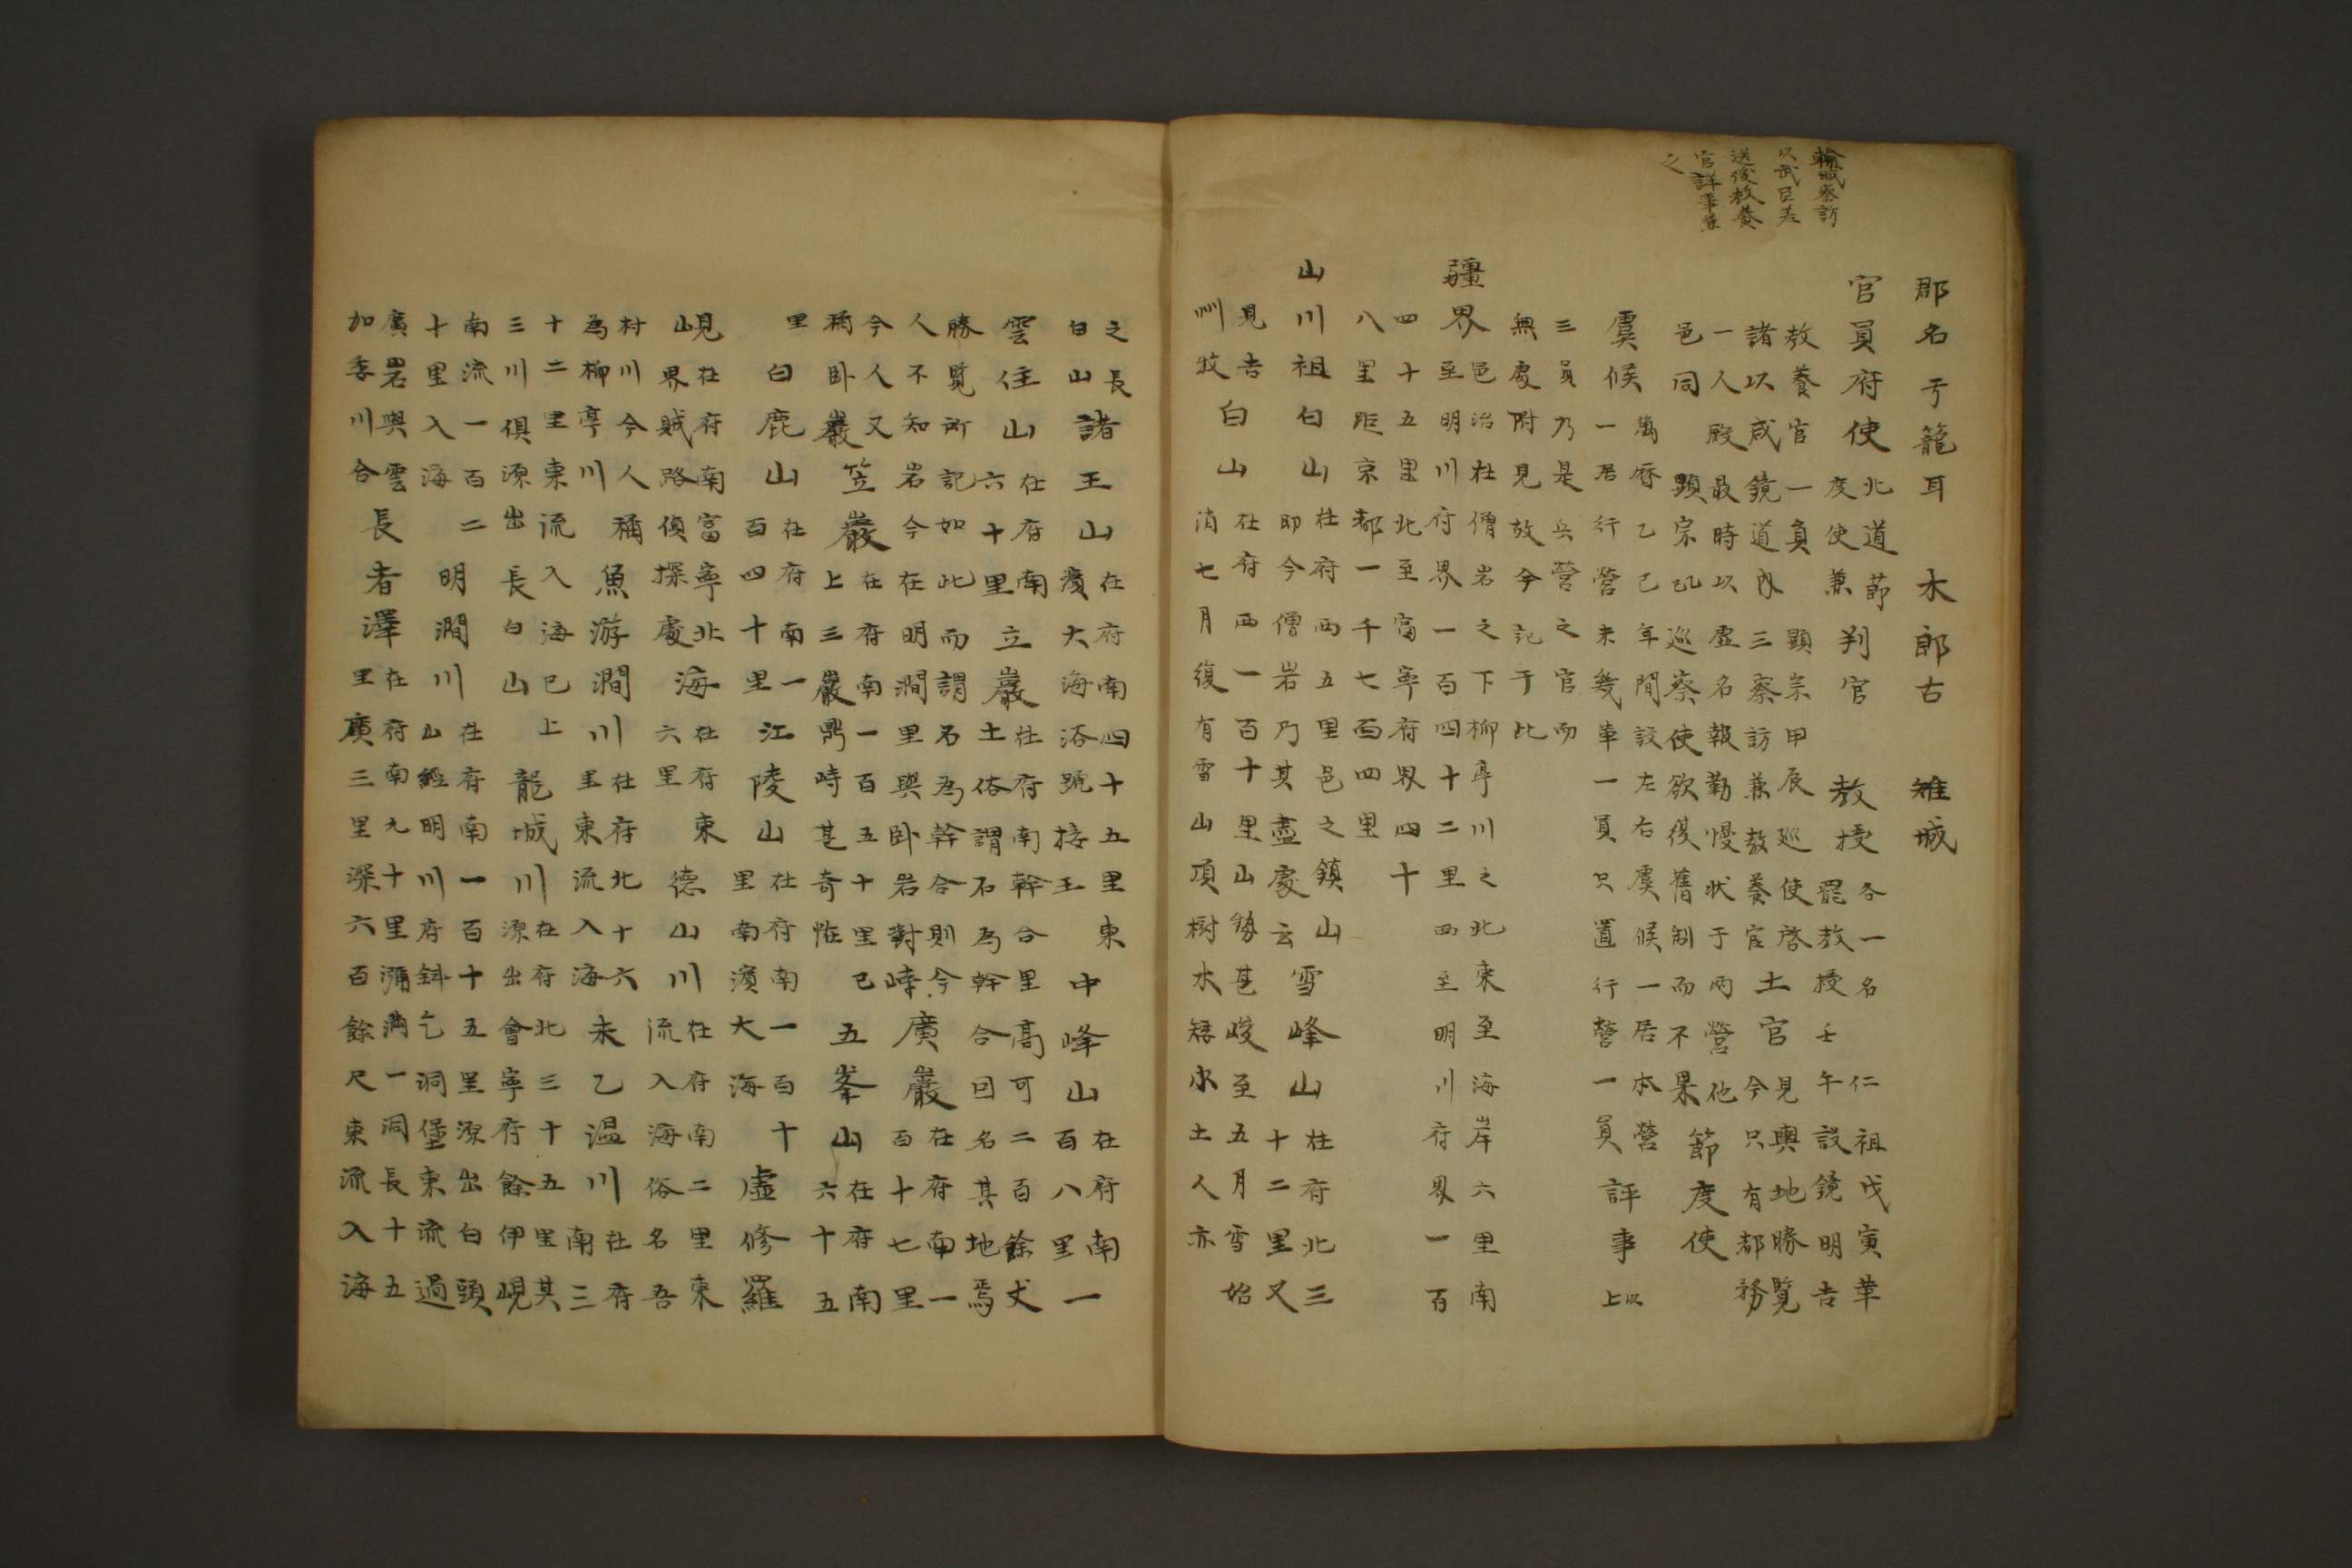 輸城察訪
以武臣差
送後教養
官評事兼
之
郡名 于籠耳 木郎古 雉城
官員 府使 北道節度使兼 判官 教授 各一名 仁祖戊寅革罷教授 壬午設鏡明吉
教養官一員 顯宗甲辰巡使啓
諸以咸鏡道內三察訪兼教養官 土官 見輿地勝覽今只有都務
一人殿最時以虛名報勤慢狀于兩營他
邑同 顯宗乙巳巡察使欲復舊制而不果 節度使
虞候 萬曆乙巳年間設左右虞候一居本營一居行營未幾革一員只置行營一員 評事 以上
三員乃是兵營之官而
無處附見故今記于此
疆界 邑治在僧岩之下柳亭川之北東至海岸六里南至明川府界一百四十二里西至明川府界一百
四十五里北至富寧府界四十
八里距京都一千七百四里
山川 祖白山 在府西五里邑之鎮山即今僧岩乃其盡處云 雪峰山 在府北三十二里又
見吉州牧 白山 在府西一百十里山勢甚峻至五月雪始消七月復有雪山頂樹木矮小土人亦
之長白山 諸王山 在府南四十五里東濱大海浴號接王 中峰山 在府南一百八里
雲住山 在府南六十里 立巖 在府南幹合里高可二百餘丈土俗謂石為幹合回名其地焉
勝覽所記如此而謂石為幹合則今人不知岩今在明澗里與卧岩對峙 廣巖 在府南一百十七里
今人又稱卧巖 笠巖 在府南一百五十里巳上三巖鼎峙甚奇怪 五峯山 在府南六十五
里 白鹿山 在府南一百四十里 江陵山 在府南一百十里南濱大海 虛修羅
峴 在府南富寧北山界賊路偵探處 海 在府東六里 東德山川 在府南二里東流入海俗名吾
村川今人為柳亭川 稱魚游澗川 在府北十六里東流入海 未乙温川 在府南三
十二里東流入海已上三川俱源出長白山 龍城川 在府北三十五里其源出會寧府餘伊峴
南流一百二十里入海 明澗川 在府南一百十五里源出白頭山經明川府斜乞洞堡東流過
廣岩與雲加委川合 長者澤 在府南九十里瀰滿一洞長十五里廣三里深六百餘尺東流入海